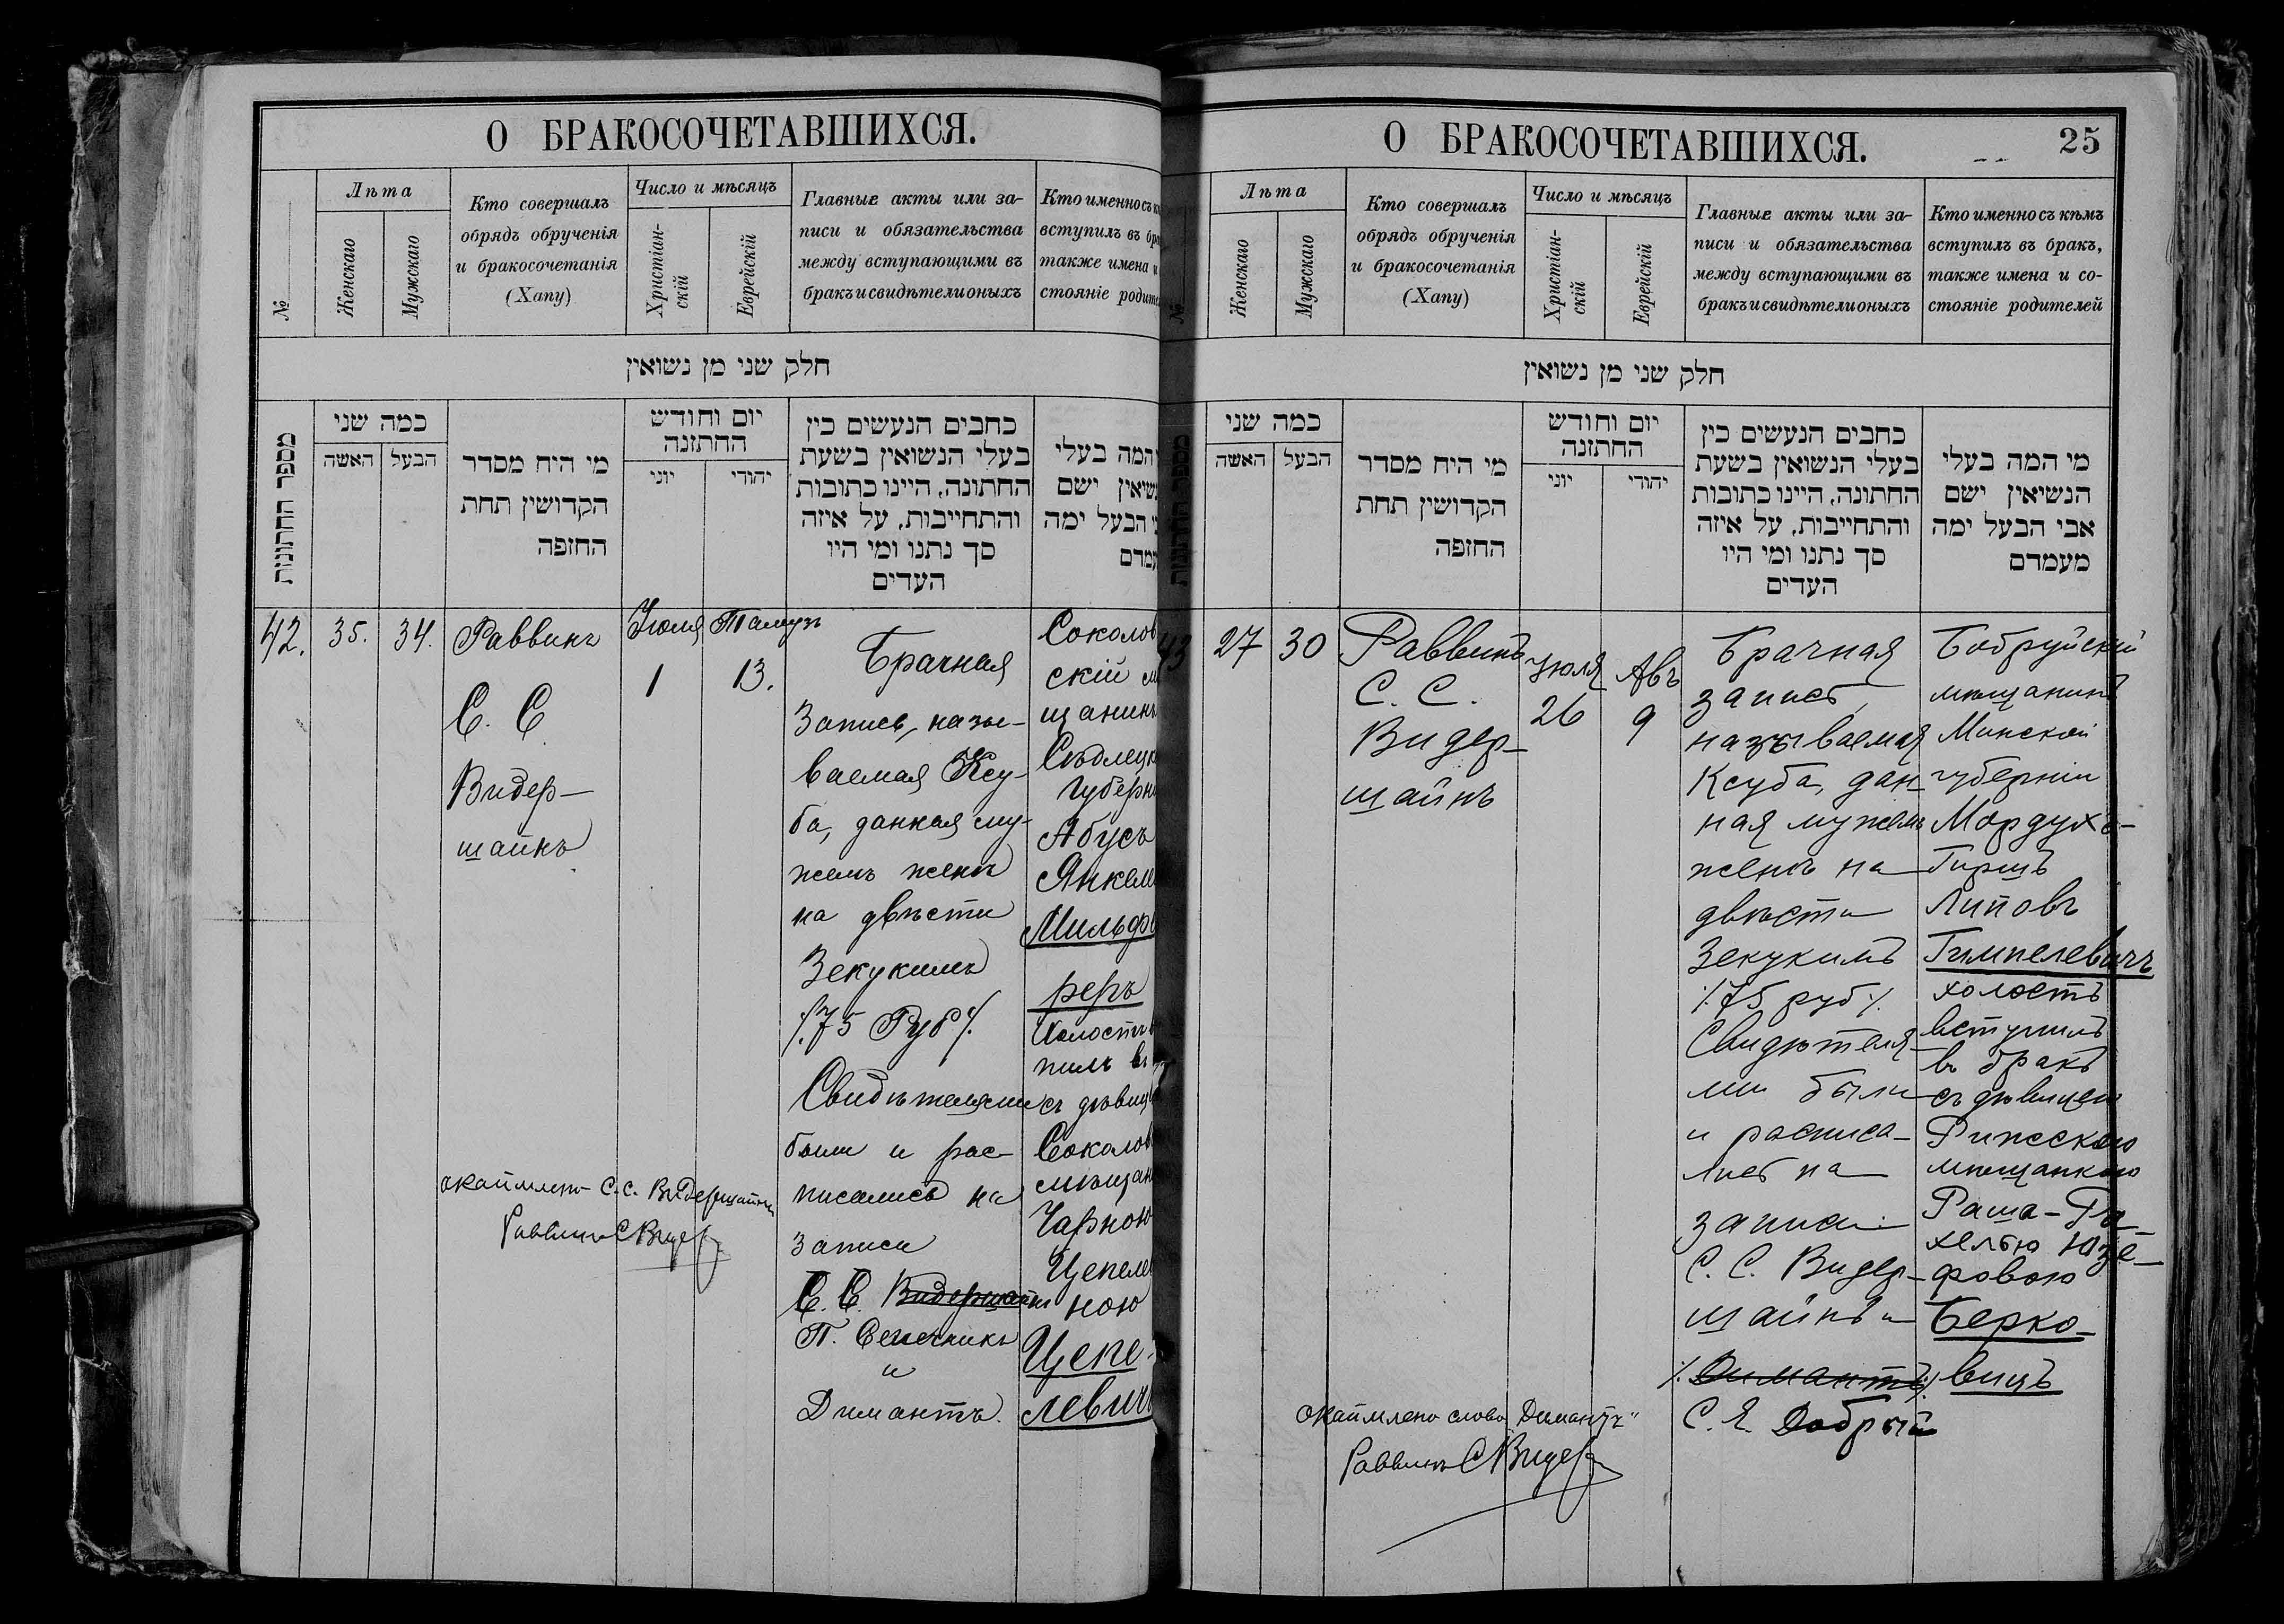 О БРАКОСОЧЕТАВШИХСЯ.
№
Лѣта
Женскаго
Мужскаго
Кто совершалъ
обрядъ обрученія
и бракосочетанія
(Хапу)
Число и мѣсяцъ
Христіан-
скій
Еврейскій
Главные акты или за-
писи и обязательства
между вступающими въ
бракъ и свидѣтели оныхъ
Кто именно съ
вступилъ въ
также имена и
стояніе
חלק שני מן נשואין
מספר החתונות
כמה שני
האשה
הבעל
מי היח מסדר
הקדושין תחת
החופה
יום וחודש
החתונה
יוני
יהודי
כתבים הנעשים בין
בעלי הנשואין בשעת
החתונה, היינו כתובות
והתחייבות, על איזה
סך נתנו ומי היו
העדים
המה בעלי
ישם
הבעל ימה
42.
35.
34.
Раввинъ
С. С.
Видер-
шайнъ
Іюля
1
Тамузъ
13.
Брачная
Запись, назы-
ваемая Ксу-
ба, данная му-
жемъ женѣ
на двѣсти
Зекукимъ
/.75 Руб/.
Свидѣтелями
были и рас-
писались на
записи
С. С. Видершайнъ
П.
и
Димантъ.
Соколов
скій
щанинъ
Сѣдлецк
Губерн
Абусь
Янкел
Мильф
реръ
Холостъ
пилъ въ
съ дѣвиц
Соколов
мѣщан
Чарною
Цепеле
ною
Цепе-
левич
окаймлено С.С. Видершайнъ
Раввинъ С Видер
О БРАКОСОЧЕТАВШИХСЯ.
25
№
Лѣта
Женскаго
Мужскаго
Кто совершалъ
обрядъ обрученія
и бракосочетанія
(Хапу)
Число и мѣсяцъ
Христіан-
скій
Еврейскій
Главные акты или за-
писи и обязательства
между вступающими въ
бракъ и свидѣтели оныхъ
Кто именно съ кѣмъ
вступилъ въ бракъ,
также имена и со-
стояніе родителей
חלק שני מן נשואין
כמה שני
האשה
הבעל
מי היח מסדר
הקדושין תחת
החופה
יום וחודש
החתונה
יוני
יהודי
כתבים הנעשים בין
בעלי הנשואין בשעת
החתונה, היינו כתובות
והתחייבות, על איזה
סך נתנו ומי היו
העדים
מי המה בעלי
הנשיאין ישם
אבי הבעל ימה
מעמדם
43
27
30
Раввинъ
С. С.
Видер-
шайнъ
Іюля
26
Авъ
9
Брачная
запись,
называемая
Ксуба, дан-
ная мужемъ
женѣ на
двѣсти
Зекукимъ
/.75 руб/.
Свидѣтеля-
ми были
и расписа-
лись на
записи:
С. С. Видер-
шайнъ и
/.Димантъ/.
С. Я. Добрый
Бобруйскій
мѣщанинъ
Минской
губерніи
Мордухъ-
Гиршъ
Липовъ
Гимпелевичъ
холостъ
вступилъ
въ бракъ
съ дѣвицею
мѣщанкою
Раша-Ра-
хелью Юзе-
фовою
Берко-
вицъ
окаймлено слово „Димантъ“
Раввинъ С Видер